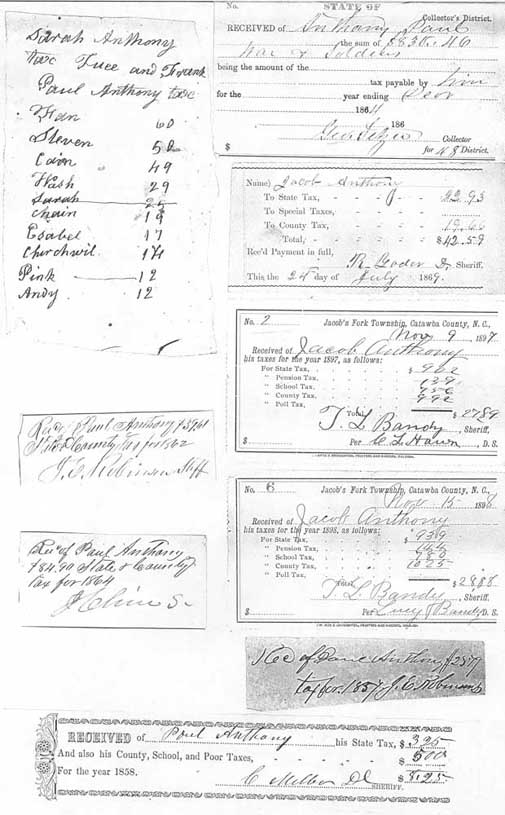 Sarah Anthony
tax Tuce and Frank
Paul Anthony tax
Han 60
Steven 50
Cain 49
Wash 29
Sarah 25
Chain 19
Esabel 17
Churchwil 14
Pink 12
Andy 12
Recd Paul Anthony $39.61
State & County Tax for 1862
J. E. Robinson Shff
Rec'd of Paul Anthony
$84.90 State & County
tax for 1864
J Cline S.
No. STATE OF
Collector's District.
RECEIVED of Anthony Paul
the sum of $830.46
being the amount of the War & Soldiers
tax payable by him
for the year ending Decr
1864
186
Geo Setzer Collector
$ for 48 District.
Name) Jacob Anthony
To State Tax, - - - 22.93
To Special Taxes,
To County Tax, - - 19.66
Total, - - - $42.59
Rec'd Payment in full,
Sheriff.
This the 24 day of July 1869.
No. 2 Jacob's Fork Township, Catawba County, N. C.,
Nov 9 1897
Received of Jacob Anthony
his taxes for the year 1897, as follows:
For State Tax, $ 902
" Pension Tax, 139
" School Tax, 756
" County Tax, 992
" Poll Tax,
Total, $ 2789
T. L. Bandy, Sheriff,
$ Per C. L. Hawn, D. S.
No. 6 Jacob's Fork Township, Catawba County, N. C.,
Nov 15 1898
Received of Jacob Anthony
his taxes for the year 1898, as follows:
For State Tax, $ 939
" Pension Tax,
" School Tax, 780
" County Tax, 1025
" Poll Tax,
Total, $ 2888
T. L. Bandy, Sheriff.
$ Per Lucy Bandy D. S.
Rec of Paul Anthony $2.57
tax for 1857 J. E. Robinson
RECEIVED of Paul Anthony his State Tax, $ 3.25
And also his County, School, and Poor Taxes, - - - $ 5.00
For the year 1858. $ 8.25
SHERIFF.